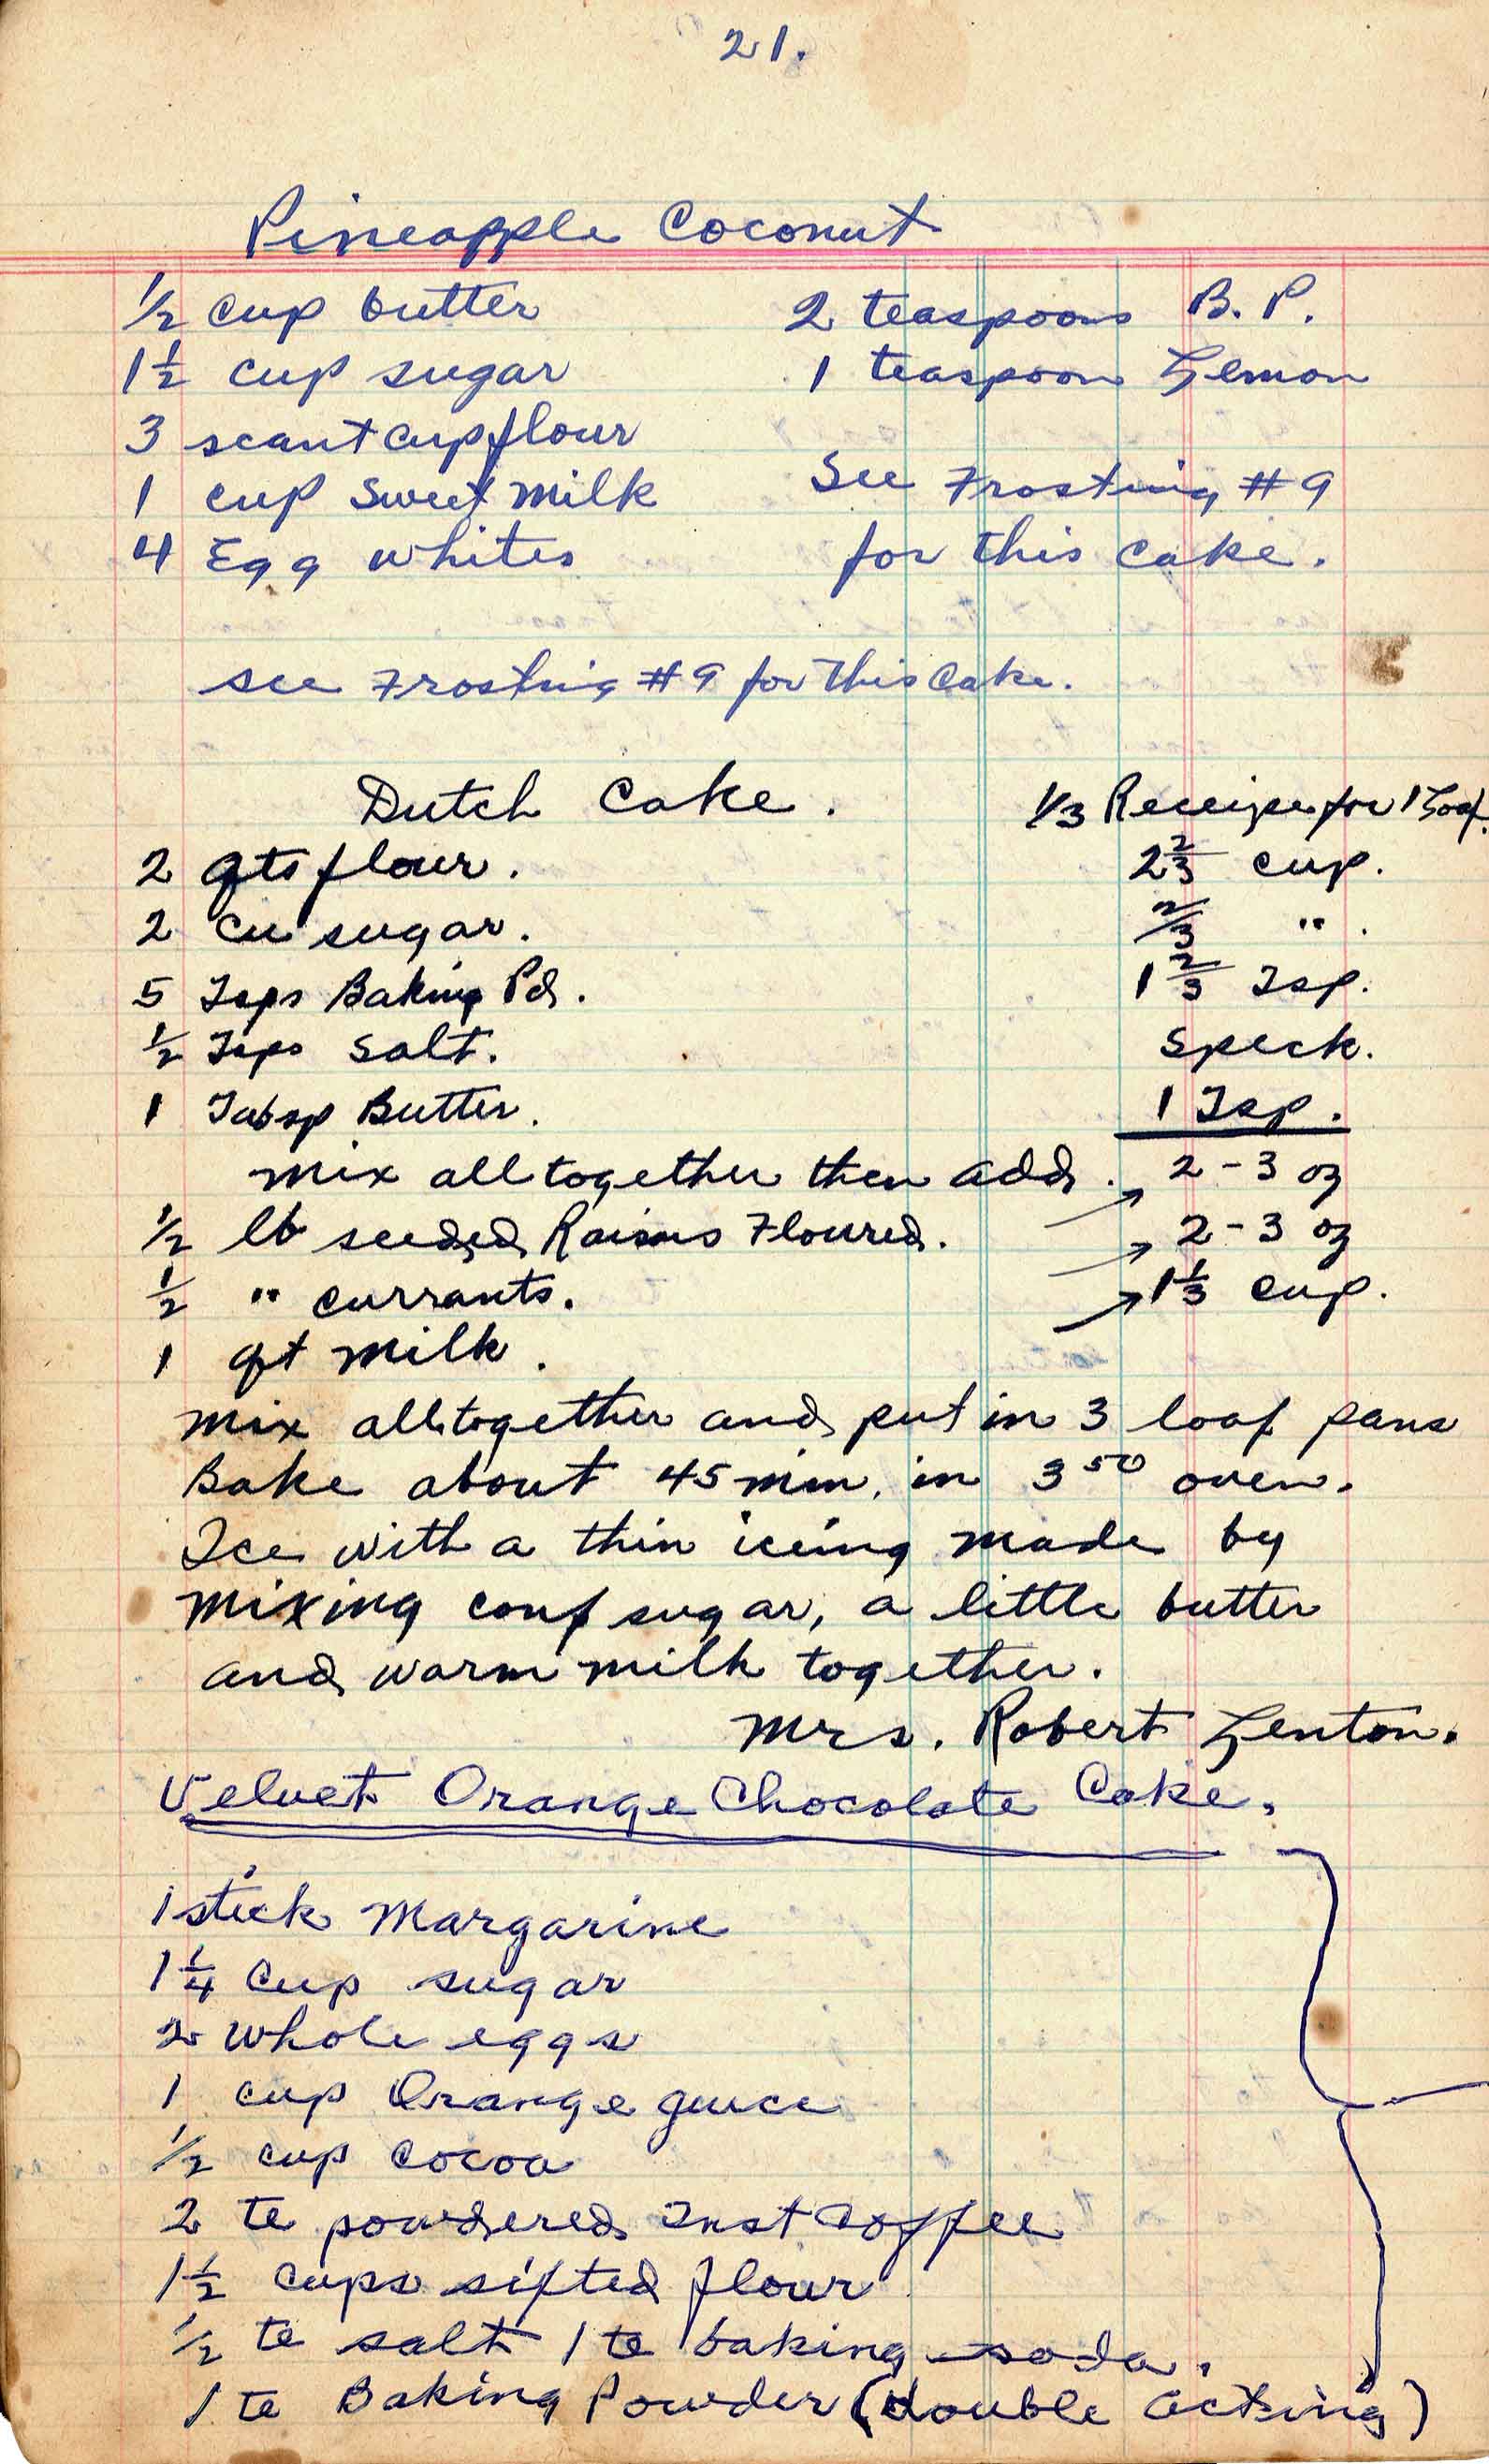 21.
Pineapple Coconut
1/2 cup butter
1 1/2 cup sugar
3 scant cup flour
1 cup sweet milk
4 Egg whites
2 teaspoons B. P.
1 teaspoon Lemon
See Frosting #9
for this cake.
see Frosting #9 for this cake.
Dutch Cake.
1/3 Receipe for 1 Loaf.
2 qts flour. 2 2/3 cup.
2 cu sugar. 2/3 " .
5 Tsps Baking Pd. 1 2/3 Tsp.
1/2 Tsps Salt. Speck.
1 Tabsp Butter. 1 Tsp.
mix all together then add. → 2-3 oz
1/2 lb seeded Raisins Floured. → 2-3 oz
1/2 " currants. → 1 1/3 cup.
1 qt milk.
mix all together and put in 3 loaf pans
Bake about 45 min. in 350 oven.
Ice with a thin icing made by
mixing conf sugar, a little butter
and warm milk together.
Mrs. Robert Lenton.
Velvet Orange Chocolate Cake.
1 stick Margarine
1 1/4 cup sugar
2 whole eggs
1 cup Orange juice
1/2 cup cocoa
2 te powdered Inst Coffee
1 1/2 cups sifted flour
1/2 te salt 1 te baking soda.
1 te Baking Powder (double acting)